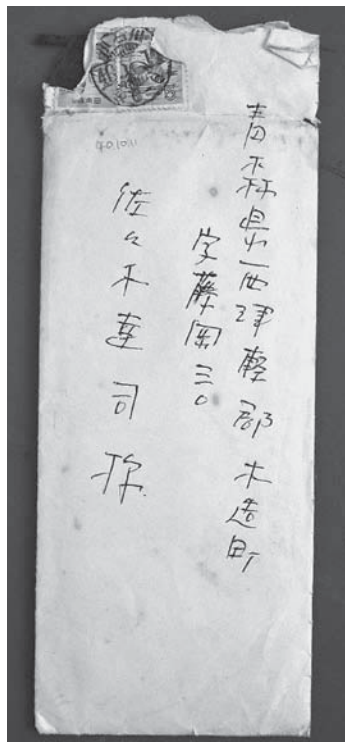 青森県西津軽郡木造町
字藤岡三〇
佐々木達司様
40.10.11